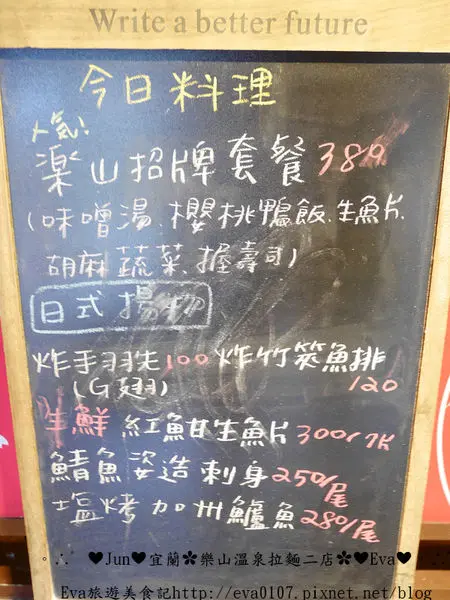 Write a better future
今日料理
人気!
楽山招牌套餐380
(味噌湯、櫻桃鴨飯、生魚片、
胡麻蔬菜、握壽司)
日式揚物
炸手羽先100 炸竹筴魚排
(G翅) 120
生鮮 紅魽生魚片300/片
鯖魚姿造刺身250/尾
塩烤加州鱸魚280/尾
。∴ ♥Jun♥宜蘭✿樂山溫泉拉麵二店✿♥Eva♥ ∴
Eva旅遊美食記http://eva0107.pixnet.net/blog